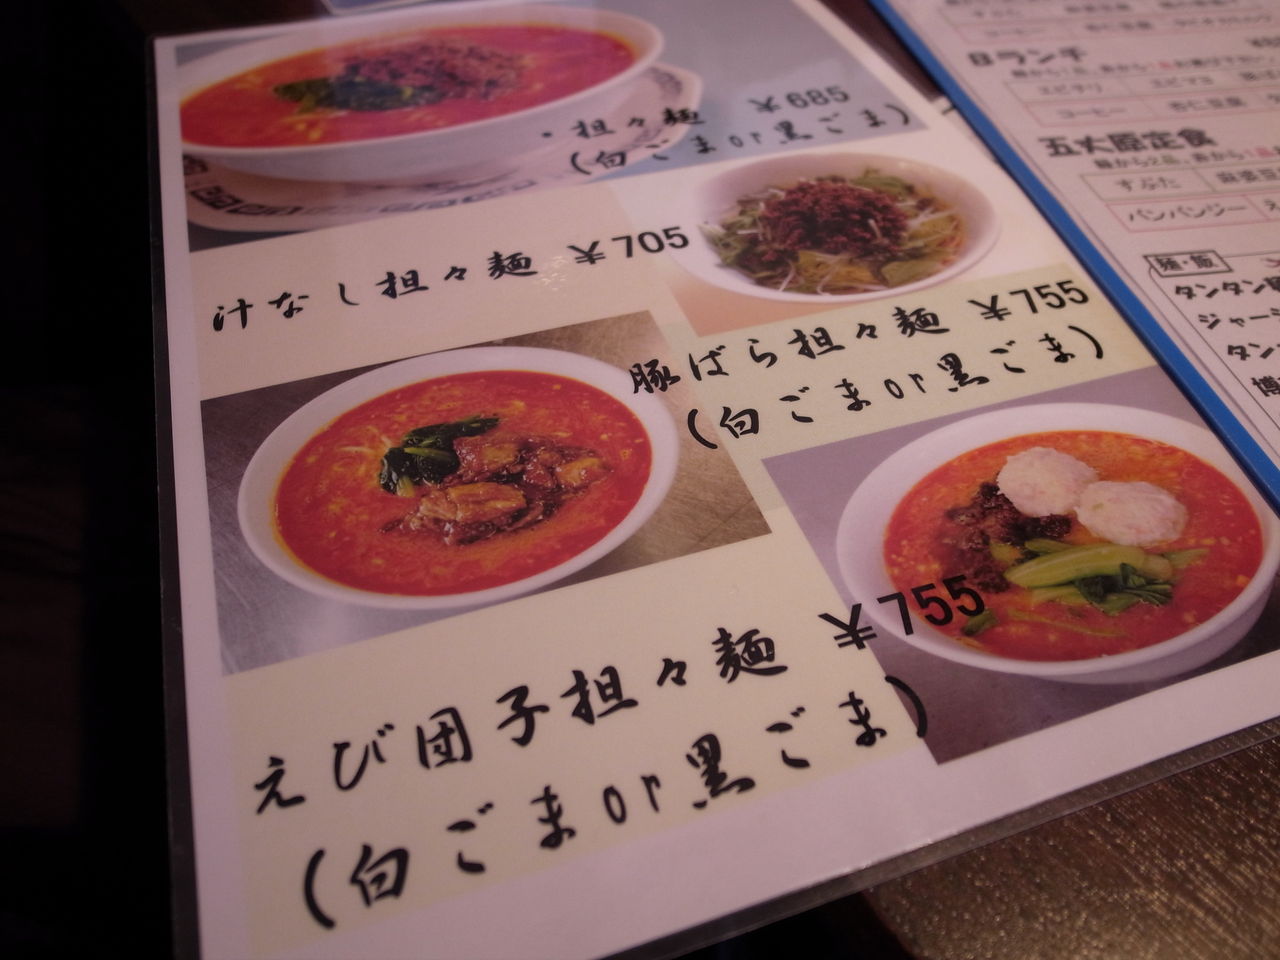 ・担々麺 ￥685
(白ごまor黒ごま)
汁なし担々麺 ￥705
豚ばら担々麺 ￥755
(白ごまor黒ごま)
えび団子担々麺 ￥755
(白ごまor黒ごま)
Bランチ
エビチリ エビマヨ
コーヒー 杏仁豆腐
五丈原定食
麺から2品、赤から1品
すぶた 麻婆豆
バンバンジー え
麺・飯
タンタン麺
ジャージ
タン
博